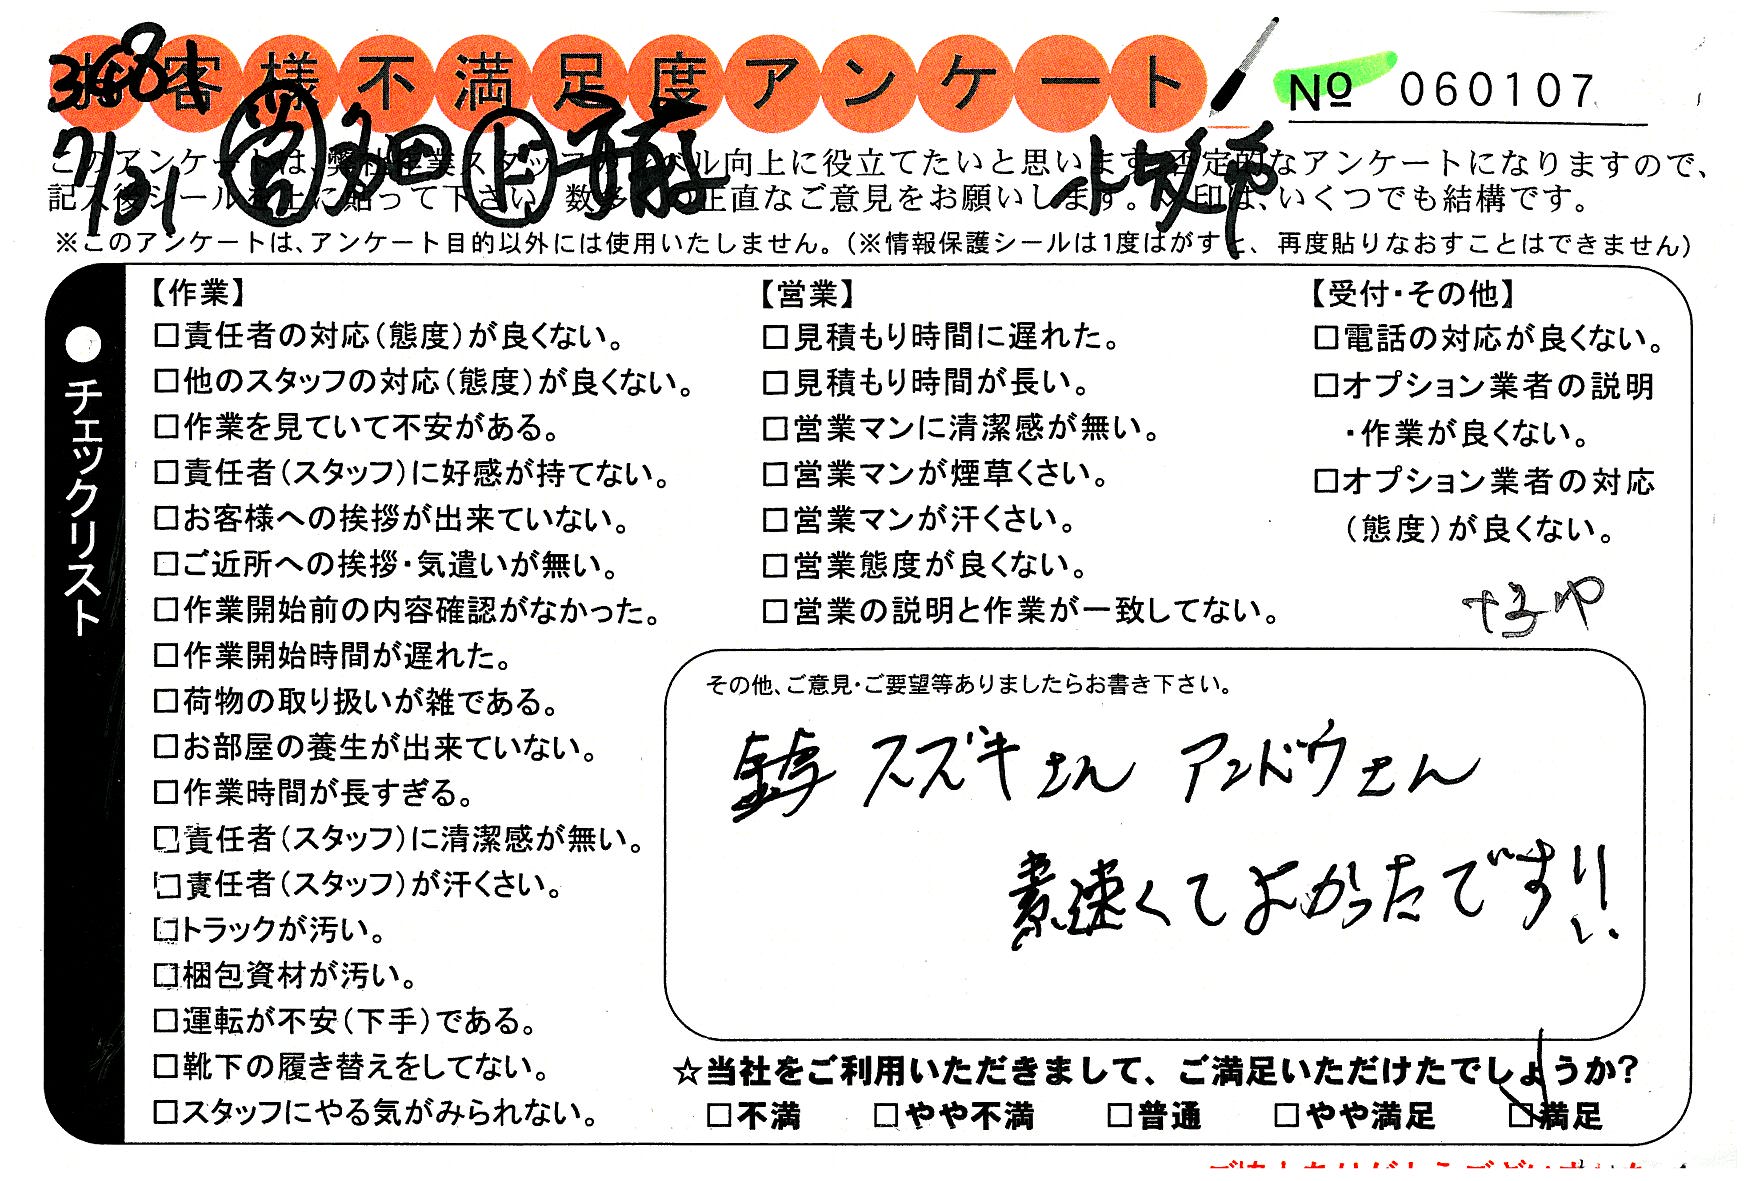 お客様不満足度アンケート
No 060107
7/31 営 多田 ド
このアンケートは、弊社作業スタッフのレベル向上に役立てたいと思います。否定的なアンケートになりますので、
記入後シールを上に貼って下さい。数多くの正直なご意見をお願いします。✓印は、いくつでも結構です。
※このアンケートは、アンケート目的以外には使用いたしません。(※情報保護シールは1度はがすと、再度貼りなおすことはできません)
●チェックリスト
【作業】
□責任者の対応(態度)が良くない。
□他のスタッフの対応(態度)が良くない。
□作業を見ていて不安がある。
□責任者(スタッフ)に好感が持てない。
□お客様への挨拶が出来ていない。
□ご近所への挨拶・気遣いが無い。
□作業開始前の内容確認がなかった。
□作業開始時間が遅れた。
□荷物の取り扱いが雑である。
□お部屋の養生が出来ていない。
□作業時間が長すぎる。
□責任者(スタッフ)に清潔感が無い。
□責任者(スタッフ)が汗くさい。
□トラックが汚い。
□梱包資材が汚い。
□運転が不安(下手)である。
□靴下の履き替えをしてない。
□スタッフにやる気がみられない。
【営業】
□見積もり時間に遅れた。
□見積もり時間が長い。
□営業マンに清潔感が無い。
□営業マンが煙草くさい。
□営業マンが汗くさい。
□営業態度が良くない。
□営業の説明と作業が一致してない。
【受付・その他】
□電話の対応が良くない。
□オプション業者の説明
・作業が良くない。
□オプション業者の対応
(態度)が良くない。
その他、ご意見・ご要望等ありましたらお書き下さい。
スズキさん アンドウさん
素速くてよかったです!!
☆当社をご利用いただきまして、ご満足いただけたでしょうか?
□不満 □やや不満 □普通 □やや満足 □満足